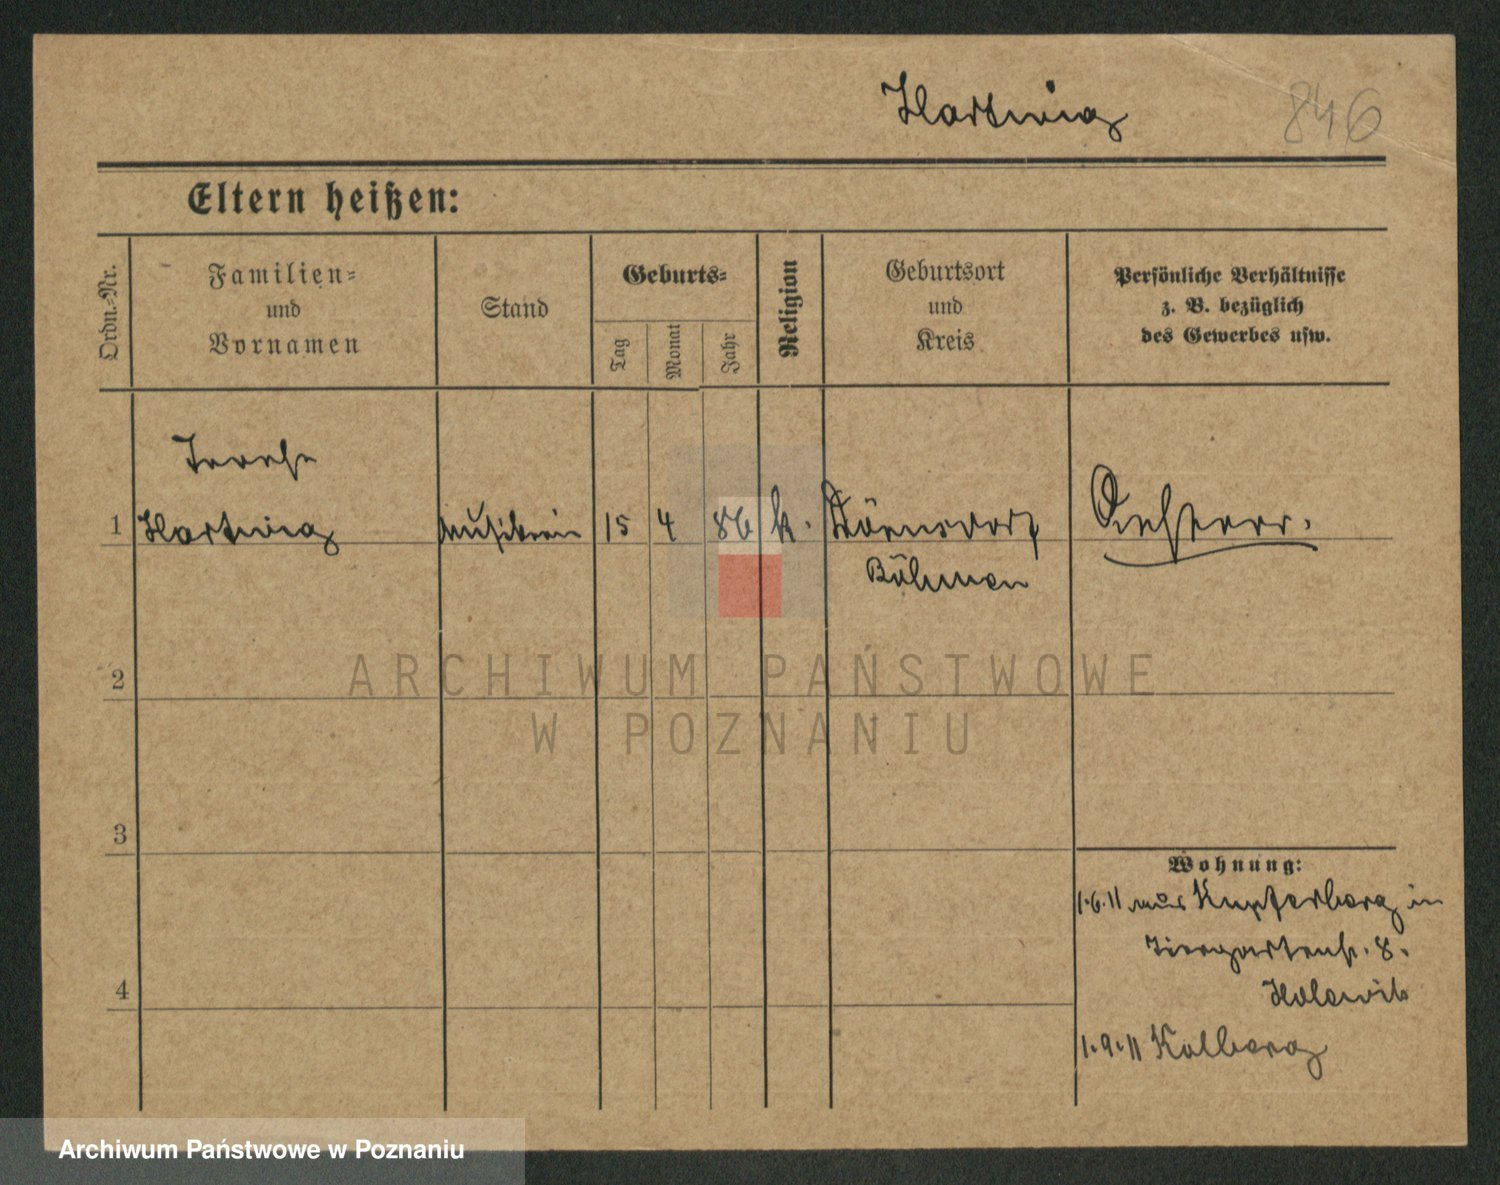 Hartwig 846
Eltern heißen:
Ordn.-Nr.
Familien-
und
Vornamen
Stand
Geburts-
Tag
Monat
Jahr
Religion
Geburtsort
und
Kreis
Persönliche Verhältnisse
z. B. bezüglich
des Gewerbes usw.
Therese
1 Hartwig Musikerin 15 4 86 k. Dörnsdorf Oesterr.
Böhmen
2
3
4
Wohnung:
1.6.11 aus Kupferberg in
Tiergartenstr. 8.
1.9.11 Kolberg
ARCHIWUM PAŃSTWOWE
W POZNANIU
Archiwum Państwowe w Poznaniu